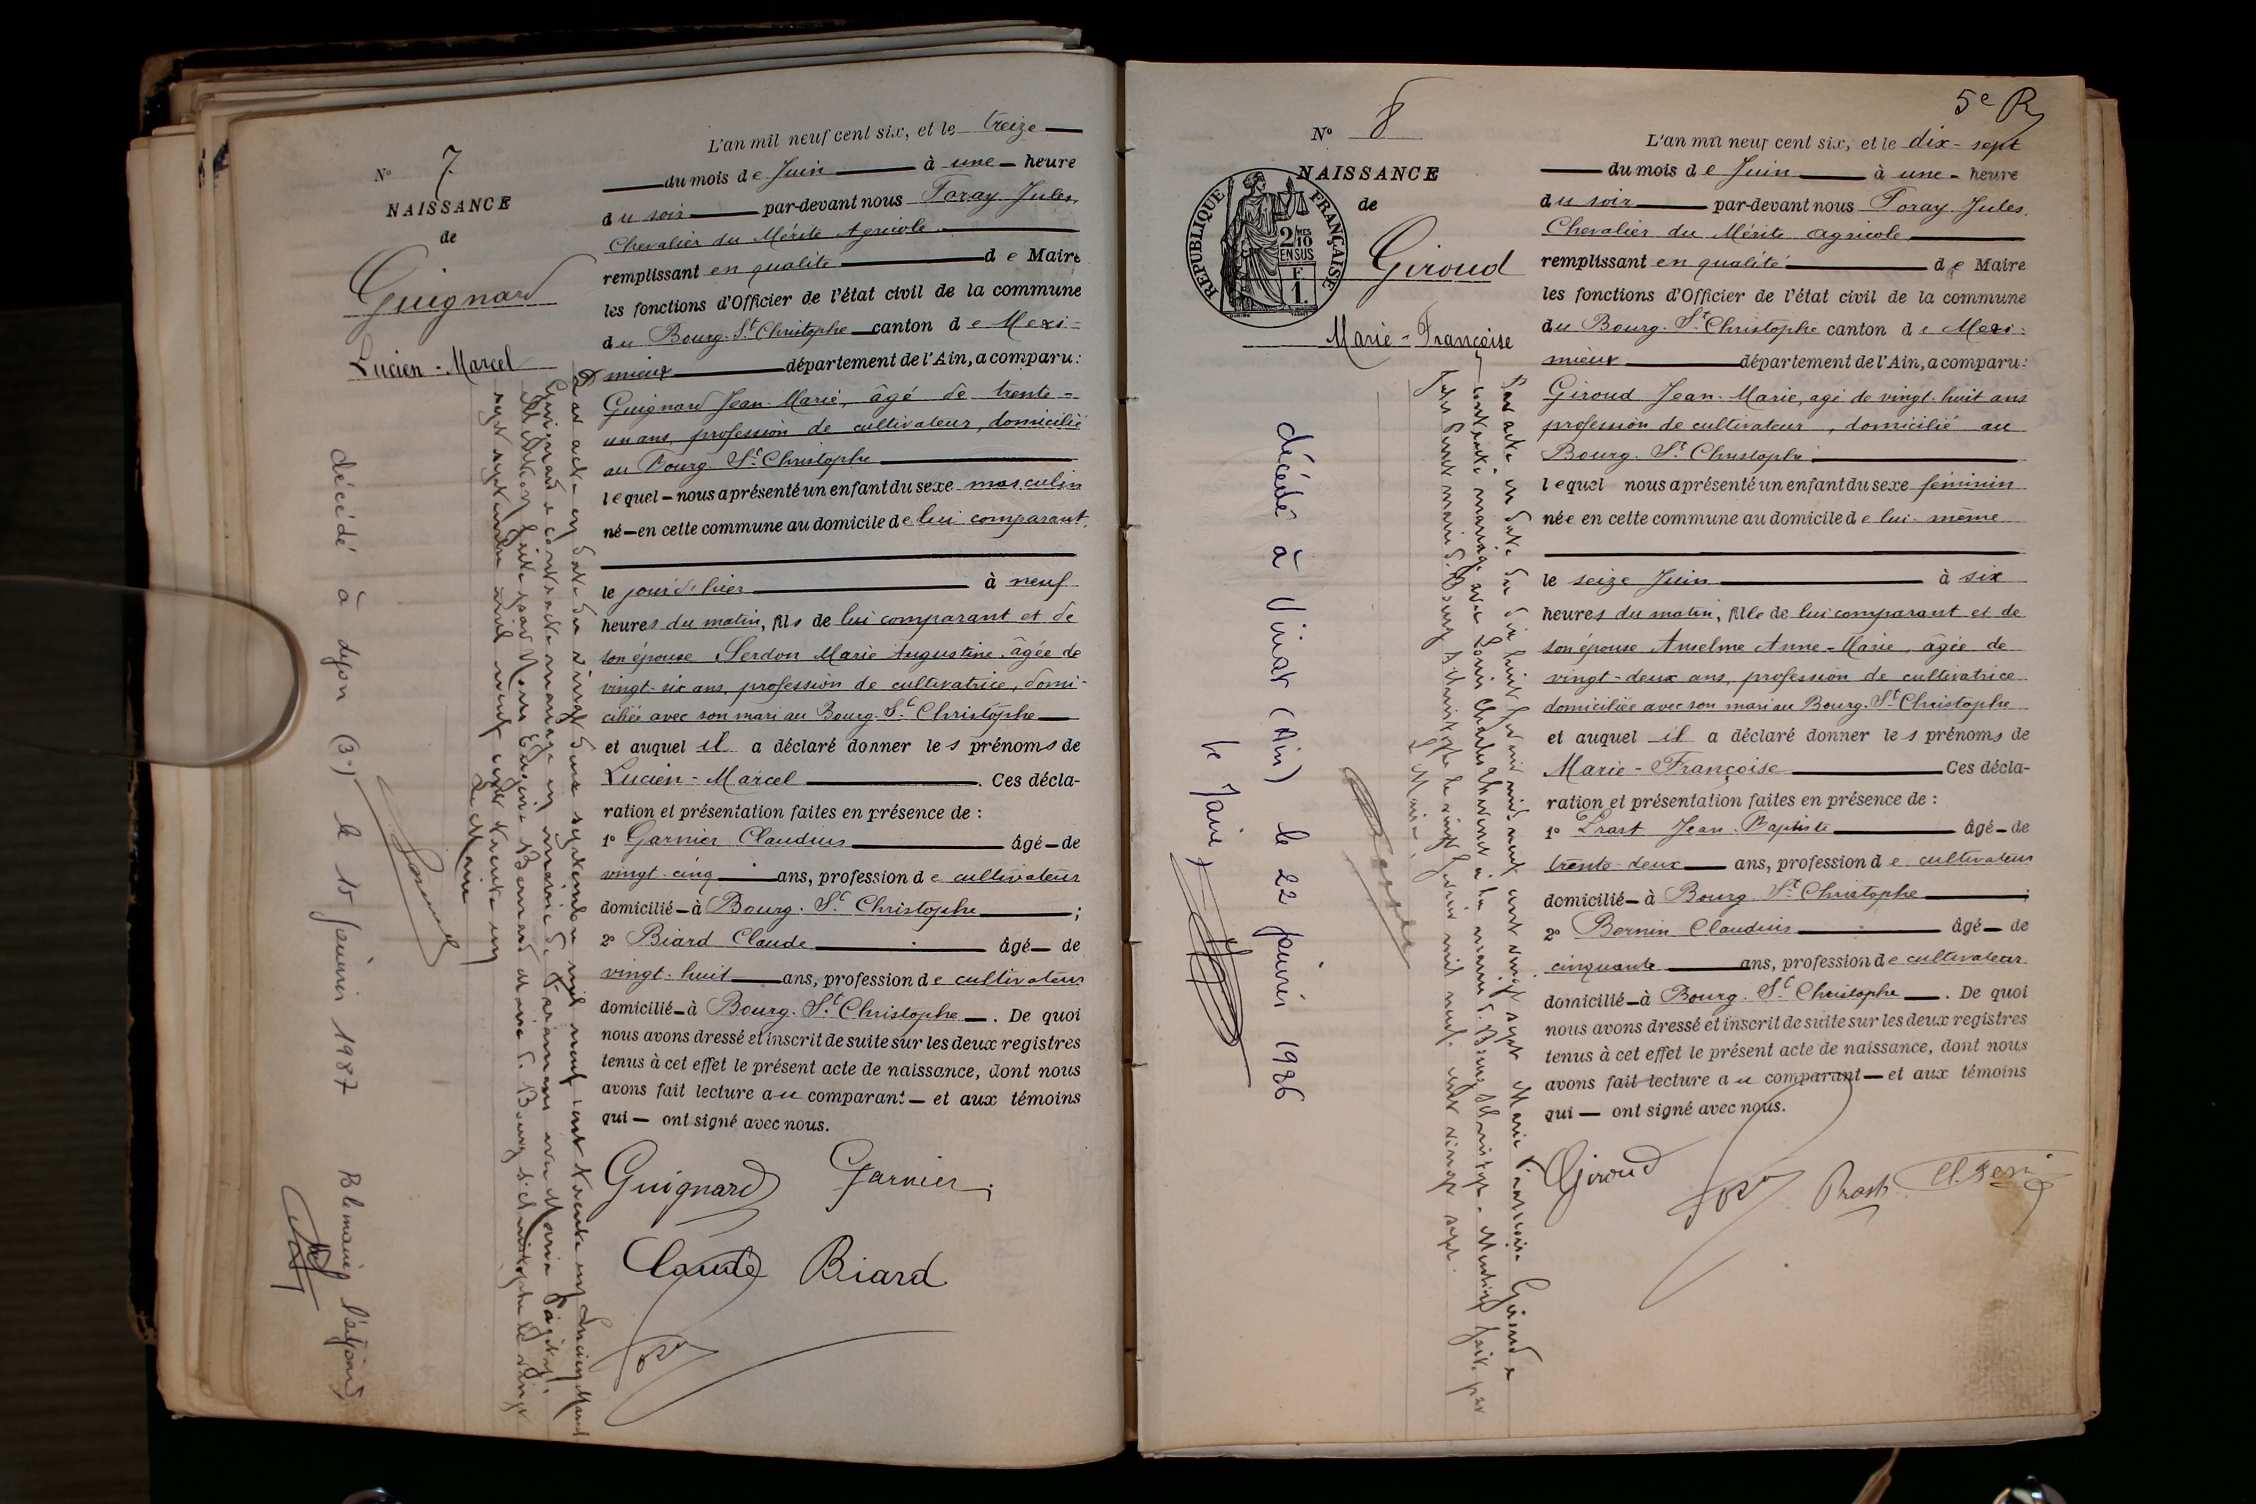 N° 7
NAISSANCE
de
Guignard
Lucien-Marcel
L'an mil neuf cent six, et le treize
du mois de Juin à une heure
du soir par-devant nous Foray Jules,
Chevalier du Mérite Agricole
remplissant en qualité de Maire
les fonctions d'Officier de l'état civil de la commune
du Bourg-St Christophe canton de Mexi-
mieux département de l'Ain, a comparu:
Guignard Jean-Marie, âgé de trente-
un ans, profession de cultivateur, domicilié
au Bourg-St Christophe
lequel nous a présenté un enfant du sexe masculin
né en cette commune au domicile de lui comparant,
le jour d'hier à neuf
heures du matin, fils de lui comparant et de
son épouse Serdon Marie Augustine, âgée de
vingt-six ans, profession de cultivatrice, domi-
ciliée avec son mari au Bourg-St Christophe
et auquel il a déclaré donner les prénoms de
Lucien-Marcel. Ces décla-
ration et présentation faites en présence de:
1° Garnier Claudius âgé de
vingt-cinq ans, profession de cultivateur
domicilié à Bourg-St Christophe;
2° Biard Claude âgé de
vingt-huit ans, profession de cultivateur
domicilié à Bourg-St Christophe. De quoi
nous avons dressé et inscrit de suite sur les deux registres
tenus à cet effet le présent acte de naissance, dont nous
avons fait lecture au comparant et aux témoins
qui ont signé avec nous.
Guignard Garnier
Claude Biard
Par acte en date du vingt deux septembre mil neuf cent trente un Lucien Marcel
Guignard a contracté mariage en mairie de Faramans avec Maria
Mention faite par Nous Eugène Bernard maire de Bourg St Christophe le vingt
sept septembre mil neuf cent trente un
Le Maire
décédé à Dijon (3°) le 15 janvier 1987
P. le maire, l'adjoint,
5e R
N° 8
NAISSANCE
de
Giroud
Marie-Françoise
RÉPUBLIQUE FRANÇAISE
2/10 MES
EN SUS
F.
1.
L'an mil neuf cent six, et le dix-sept
du mois de Juin à une heure
du soir par-devant nous Foray Jules,
Chevalier du Mérite Agricole
remplissant en qualité de Maire
les fonctions d'Officier de l'état civil de la commune
du Bourg-St Christophe canton de Mexi-
mieux département de l'Ain, a comparu:
Giroud Jean-Marie, agé de vingt-huit ans
profession de cultivateur, domicilié au
Bourg-St Christophe
lequel nous a présenté un enfant du sexe féminin
née en cette commune au domicile de lui-même
le seize Juin à six
heures du matin, fille de lui comparant et de
son épouse Anselme Anne-Marie, âgée de
vingt-deux ans, profession de cultivatrice
domiciliée avec son mari au Bourg-St Christophe
et auquel il a déclaré donner les prénoms de
Marie-Françoise Ces décla-
ration et présentation faites en présence de:
1° Prast Jean-Baptiste âgé de
trente-deux ans, profession de cultivateur
domicilié à Bourg-St Christophe;
2° Bernin Claudius âgé de
cinquante ans, profession de cultivateur
domicilié à Bourg-St Christophe. De quoi
nous avons dressé et inscrit de suite sur les deux registres
tenus à cet effet le présent acte de naissance, dont nous
avons fait lecture au comparant et aux témoins
qui ont signé avec nous.
Giroud Prast
Par acte en date du dix huit février mil neuf cent vingt sept Marie Françoise Giroud a
contracté mariage avec Louis Charles à la mairie de Bourg St Christophe. Mention faite par
maire de Bourg St Christophe le vingt février mil neuf cent vingt sept.
Le Maire,
décédé à (Ain) le 22 janvier 1986
le Maire,